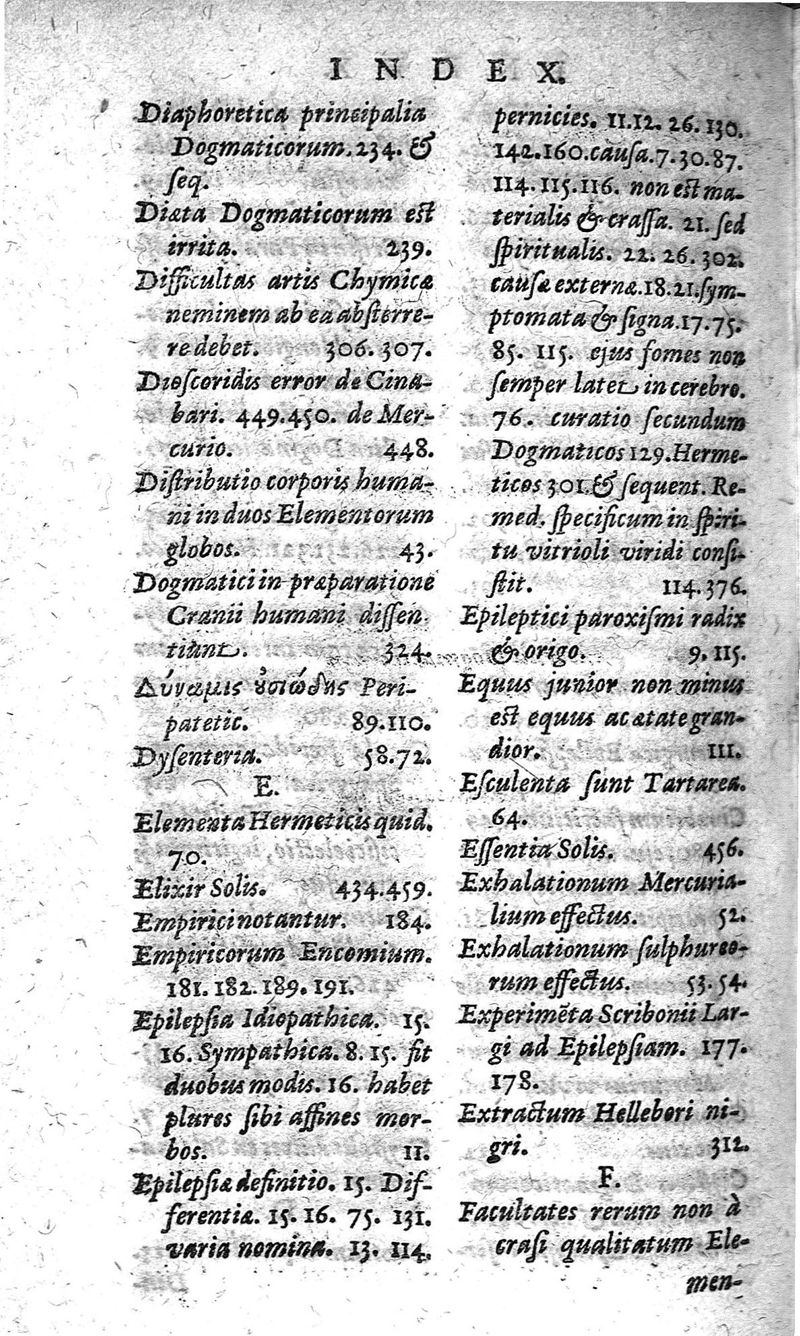 INDEX.
Diaphoretica principalia
Dogmaticorum. 234. &
ſeq.
Diæta Dogmaticorum eſt
irrita. 239.
Difficultas artis Chymicæ
neminem ab ea abſterre-
re debet. 306. 307.
Dioſcoridis error de Cina-
bari. 449. 450. de Mer-
curio. 448.
Diſtributio corporis huma-
ni in duos Elementorum
globos. 43.
Dogmatici in præparatione
Cranii humani diſſen
tiunt. 324.
Δύναμις ȣ̓σιώδης Peri-
patetic. 89. 110.
Dyſenteria. 58. 72.
E.
Elementa Hermeticis quid.
70.
Elixir Solis. 434. 459.
Empirici notantur. 184.
Empiricorum Encomium.
181. 182. 189. 191.
Epilepſia Idiopathica. 15.
16. Sympathica. 8. 15. fit
duobus modis. 16. habet
plures ſibi affines mor-
bos. 11.
Epilepſiæ definitio. 15. Dif-
ferentiæ. 15. 16. 75. 131.
varia nomina. 13. 114.
pernicies. 11. 12. 26. 130.
142. 160. cauſa. 7. 30. 87.
114. 115. 116. non eſt ma-
terialis & craſſa. 21. ſed
ſpiritualis. 22. 26. 302.
cauſæ externæ. 18. 21. ſym-
ptomata & ſigna. 17. 75.
85. 115. ejus fomes non
ſemper latet in cerebro.
76. curatio ſecundum
Dogmaticos 129. Herme-
ticos 301. & ſequent. Re-
med. ſpecificum in ſpiri-
tu vitrioli viridi conſi-
ſtit. 114. 376.
Epileptici paroxiſmi radix
& origo. 9. 115.
Equus junior non minus
eſt equus ac ætate gran-
dior. 111.
Eſculenta ſunt Tartarea.
64.
Eſſentia Solis. 456.
Exhalationum Mercuria-
lium effectus. 52.
Exhalationum ſulphureo-
rum effectus. 53. 54.
Experimẽta Scribonii Lar-
gi ad Epilepſiam. 177.
178.
Extractum Hellebori ni-
gri. 312.
F.
Facultates rerum non à
craſi qualitatum Ele-
men-